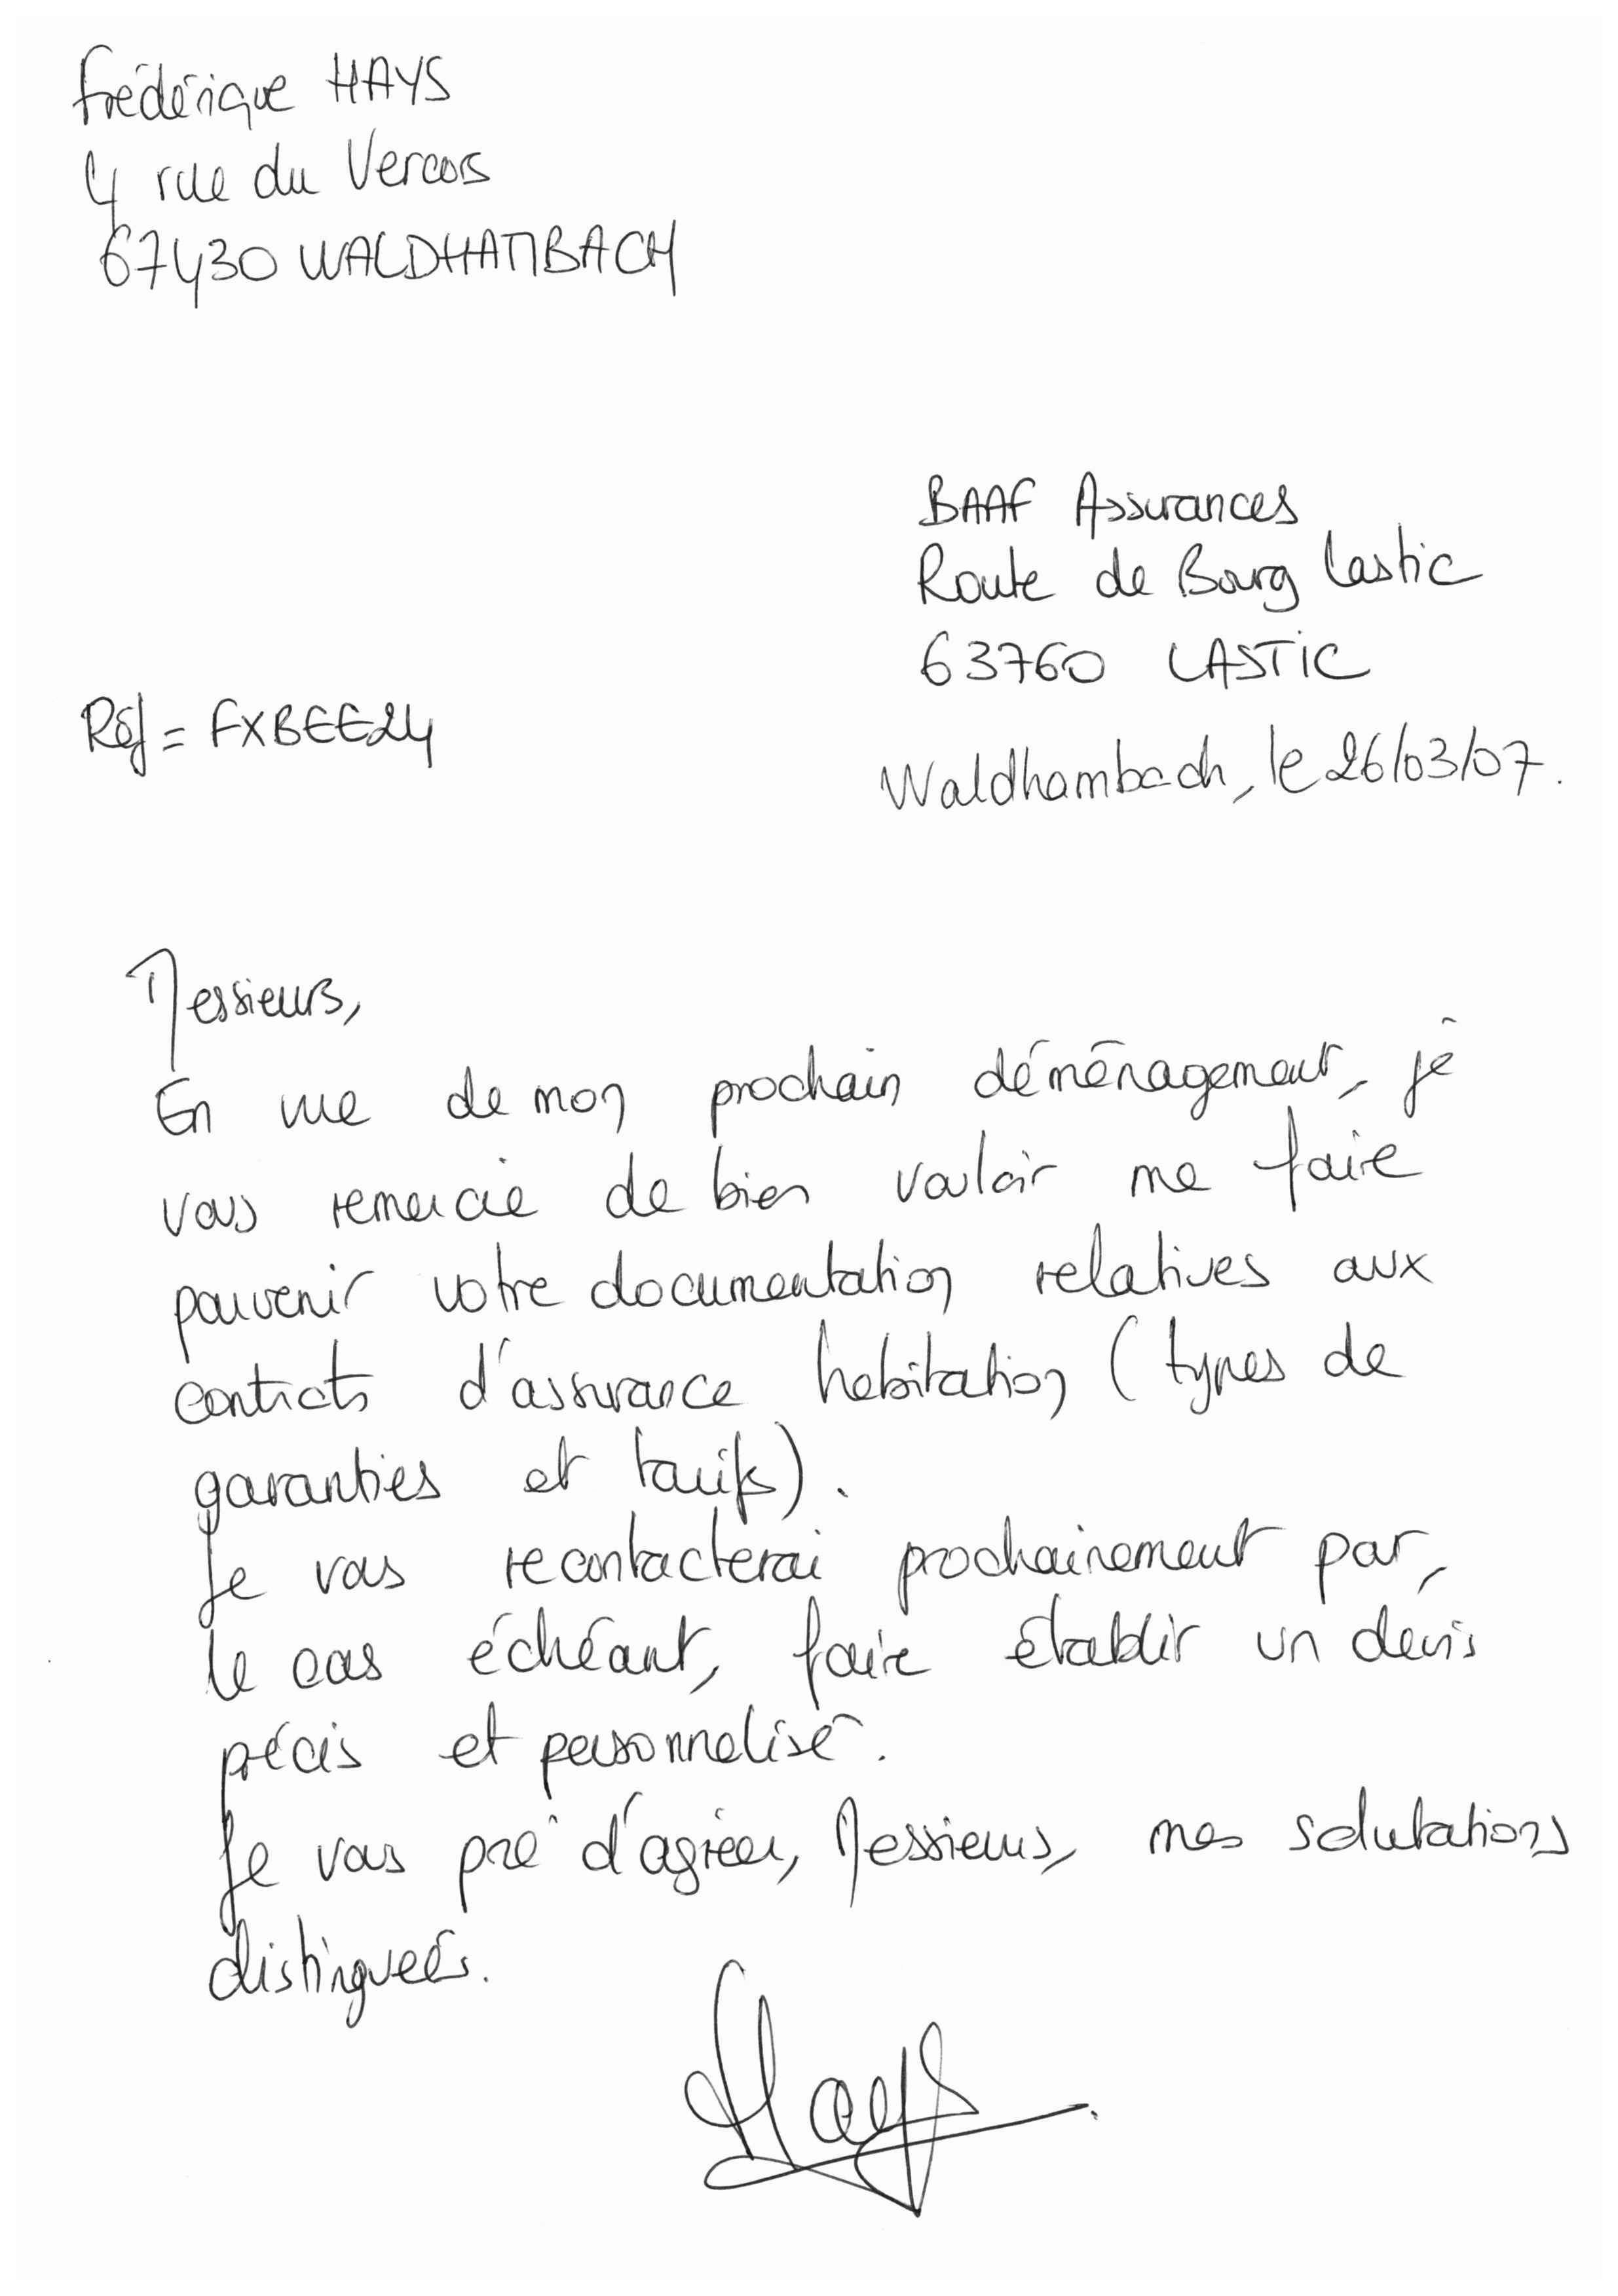 Frédérique HAYS
4 rue du Vercors
67430 WALDHAMBACH
BAAF Assurances
Route de Bourg Lastic
63760 LASTIC
Réf = FXBEE24
Waldhambach, le 26/03/07.
Messieurs,
En vue de mon prochain déménagement, je
vous remercie de bien vouloir me faire
parvenir votre documentation relatives aux
contrats d'assurance habitation (types de
garanties et tarifs).
Je vous recontacterai prochainement par,
le cas échéant, faire établir un devis
précis et personnalisé.
Je vous prie d'agréer, Messieurs, mes salutations
distinguées.
Hays